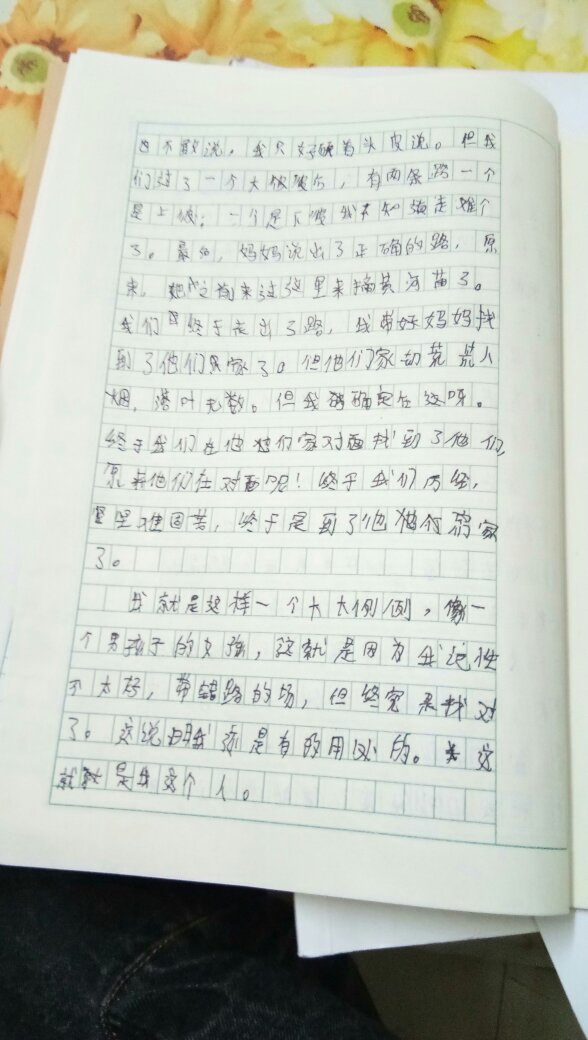 也不敢说，我只好硬着头皮说。但我
们过了一个大坡坡后，有两条路一个
是上坡；一个是下坡我不知道走哪个
了。最后，妈妈说出了正确的路，原
来，她之前来过这里来摘黄河苗了。
我们终于走出了路，我带妈妈找
到了他们家了。但他们家却荒荒人
烟，落叶无数。但我确定在这呀。
终于我们在他们家对面找到了他们，
原来他们在对面呢！终于我们历经，
坚难困苦，终于是到了他们家
了。
我就是这样一个大大咧咧，像一
个男孩子的女孩，这就是因为我记性
不太好，带错路的场，但终究是找对
了。这说明我还是有的用以的。这
就是我这个人。